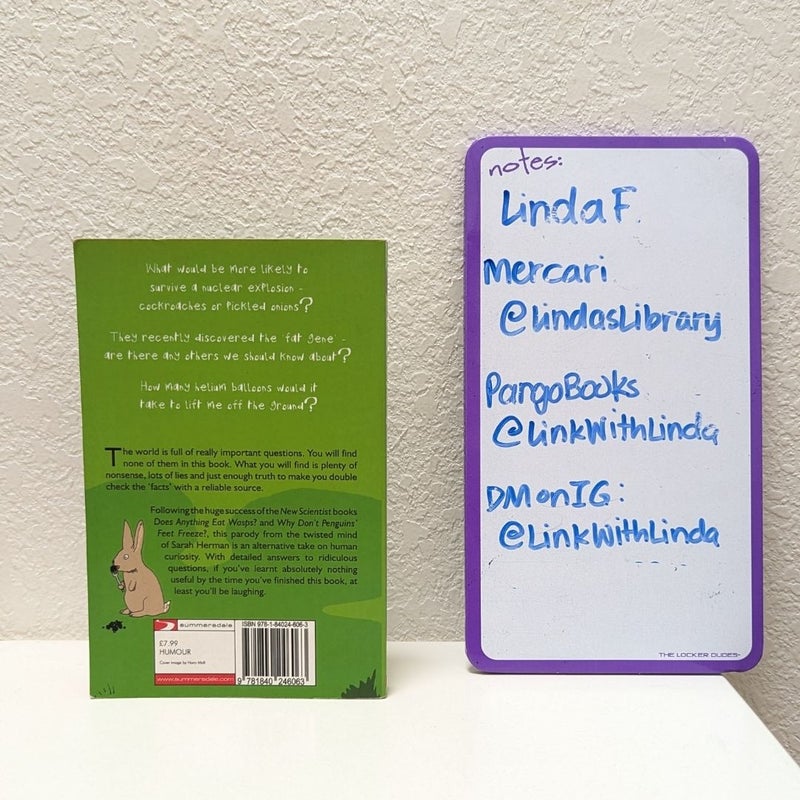 What would be more likely to
survive a nuclear explosion -
cockroaches or pickled onions?
They recently discovered the 'fat gene' -
are there any others we should know about?
How many helium balloons would it
take to lift me off the ground?
The world is full of really important questions. You will find
none of them in this book. What you will find is plenty of
nonsense, lots of lies and just enough truth to make you double
check the 'facts' with a reliable source.
Following the huge success of the New Scientist books
Does Anything Eat Wasps? and Why Don't Penguins'
Feet Freeze?, this parody from the twisted mind
of Sarah Herman is an alternative take on human
curiosity. With detailed answers to ridiculous
questions, if you've learnt absolutely nothing
useful by the time you've finished this book, at
least you'll be laughing.
summersdale
£7.99
HUMOUR
Cover image by
www.summersdale.com
ISBN 978-1-84024-606-3
9 781840 246063
notes:
Linda F.
Mercari
@lindasLibrary
PangoBooks
@LinkWithLinda
DM on IG:
@LinkWithLinda
THE LOCKER DUDES